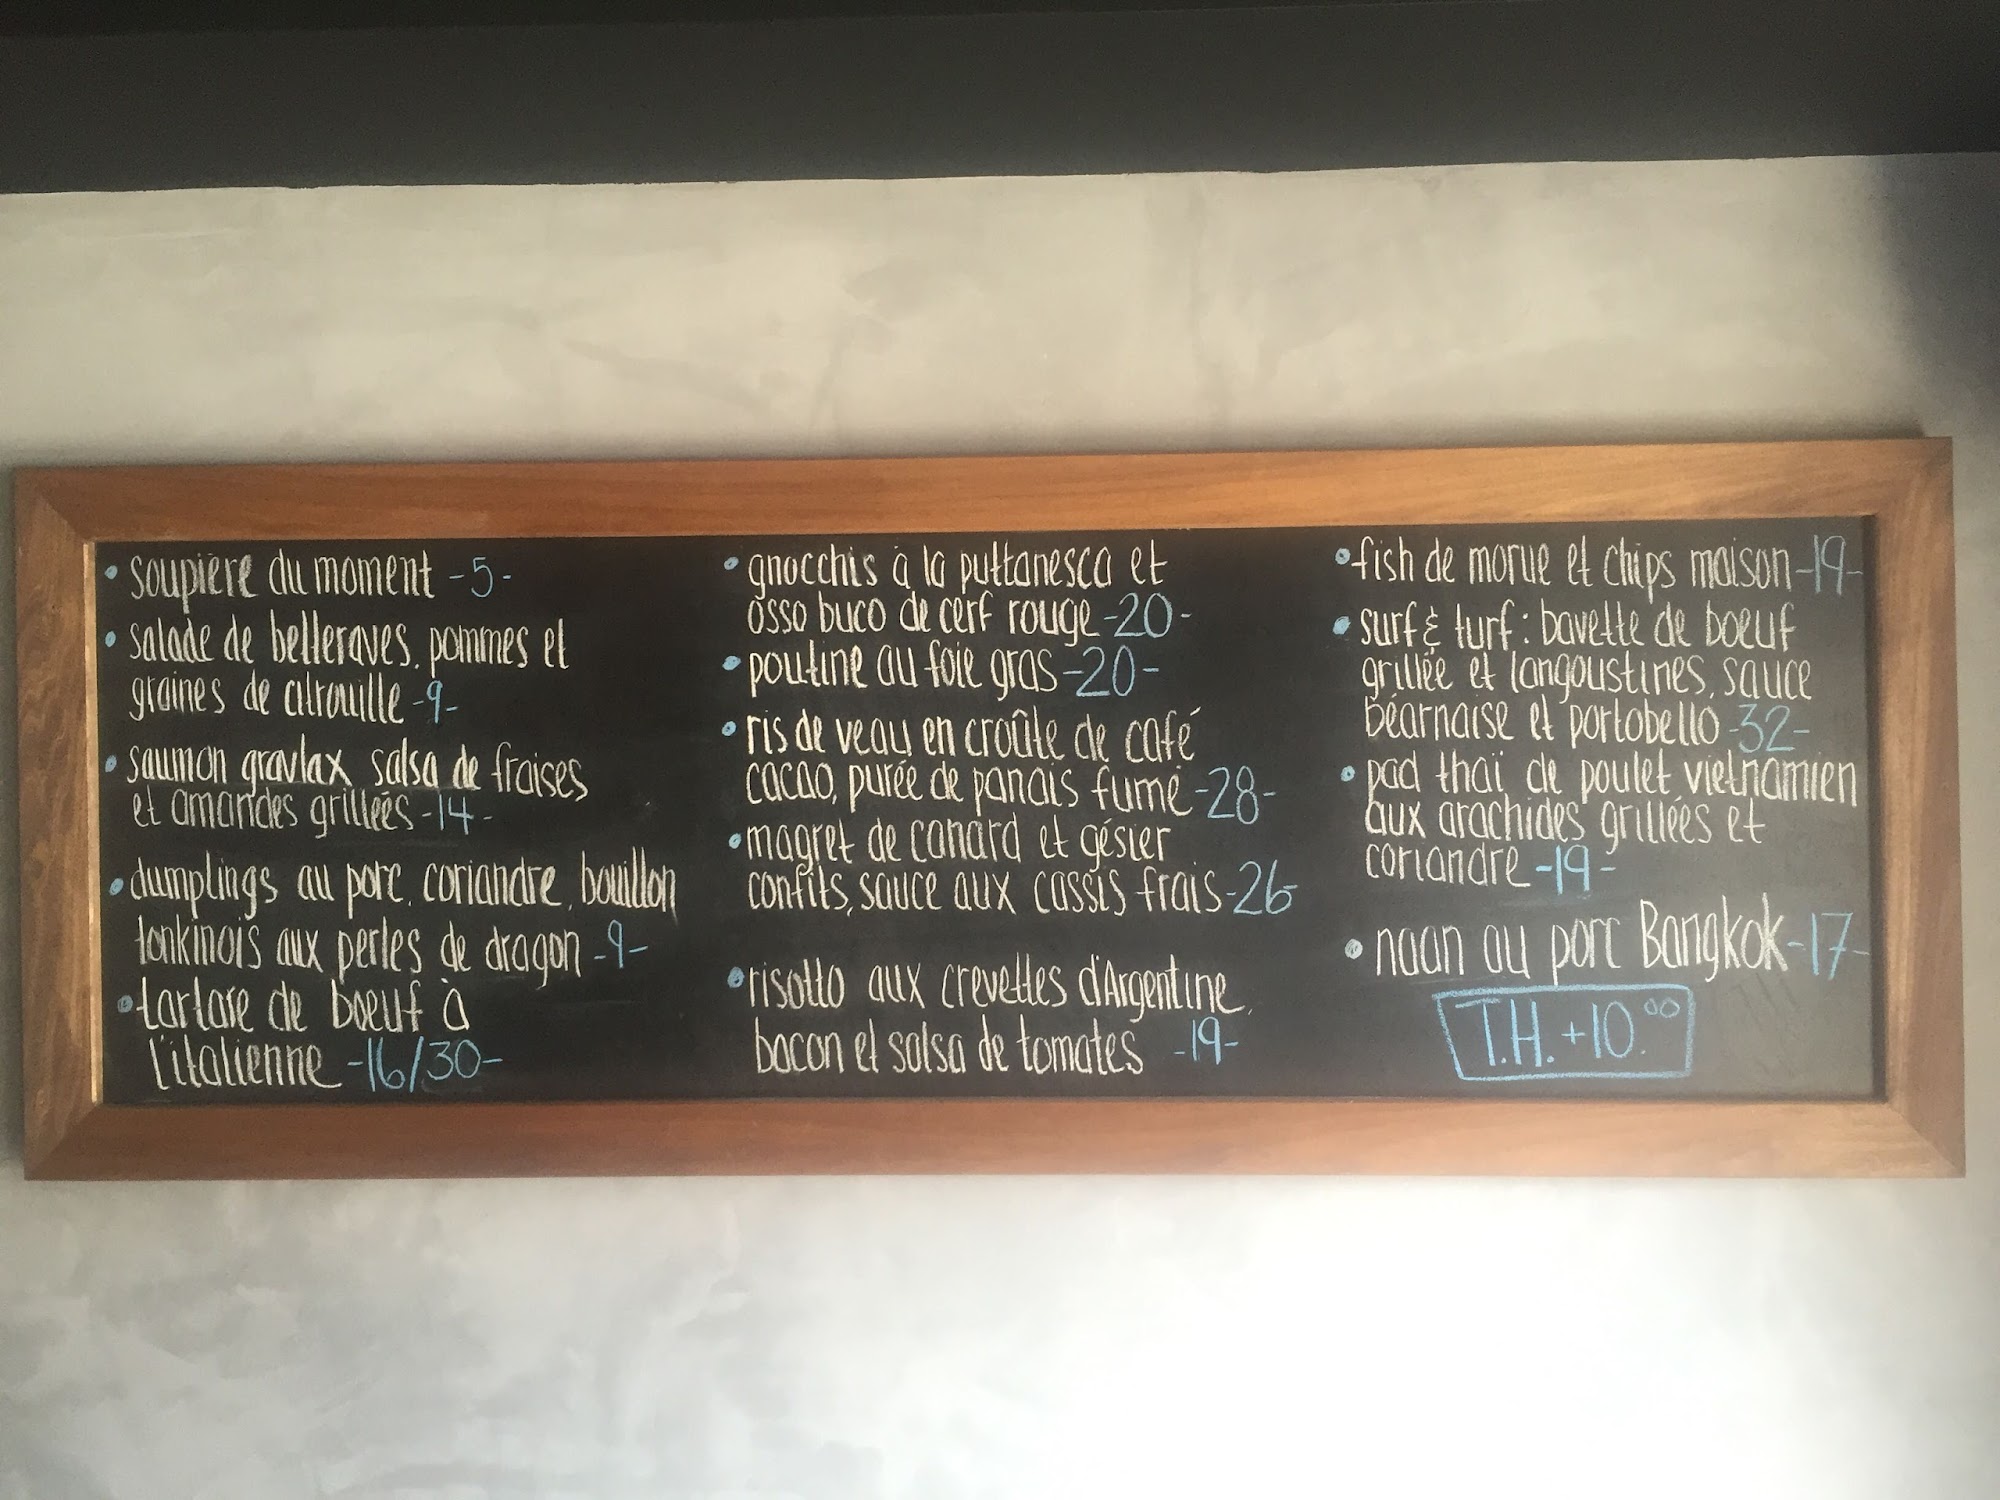 • soupière du moment -5-
• salade de betteraves, pommes et
graines de citrouille -9-
• saumon gravlax, salsa de fraises
et amandes grilleés -14-
• dumplings au porc, coriandre, bouillon
tonkinois aux perles de dragon -9-
• tartare de boeuf à
l'italienne -16/30-
• gnocchis à la puttanesca et
osso buco de cerf rouge -20-
• poutine au foie gras -20-
• ris de veau en croûte de café
cacao, purée de panais fumé -28-
• magret de canard et gésier
confits, sauce aux cassis frais -26-
• risotto aux crevettes d'Argentine,
bacon et salsa de tomates -19-
• fish de morue et chips maison -19-
• surf & turf : bavette de boeuf
grillée et langoustines, sauce
béarnaise et portobello -32-
• pad thaï de poulet vietnamien
aux arachides grillées et
coriandre -19-
• naan au porc Bangkok -17-
T.H. +10.00